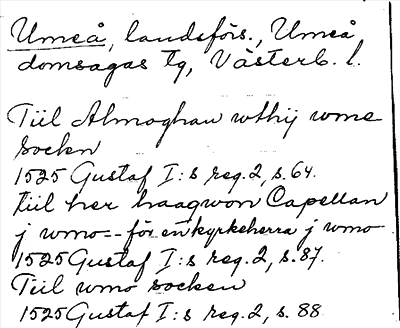 Umeå, landsförs., Umeå
domsagas tg, Västerb. l.
Tiil Almoghan wthij wme
sockn
1525 Gustaf I:s reg. 2, s. 64.
tiil her haaqwon Capellan
j wmo -- för en kyrkeherra j wmo
1525 Gustaf I:s reg. 2, s. 87.
Tiil wmo socken
1525 Gustaf I:s reg. 2, s. 88